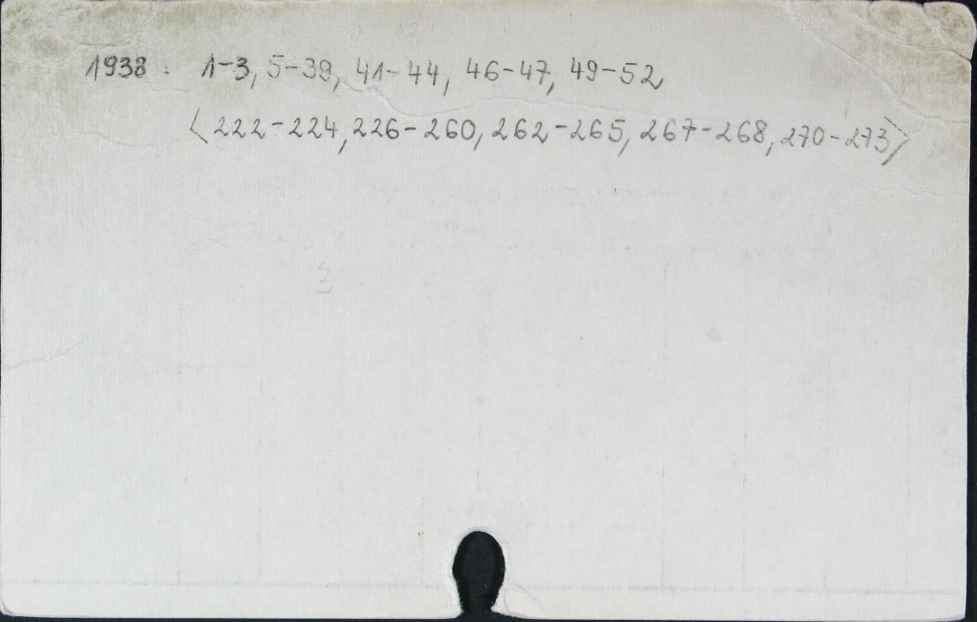 1938 : 1-3, 5-39, 41-44, 46-47, 49-52,
<222-224, 226-260, 262-265, 267-268, 270-273>